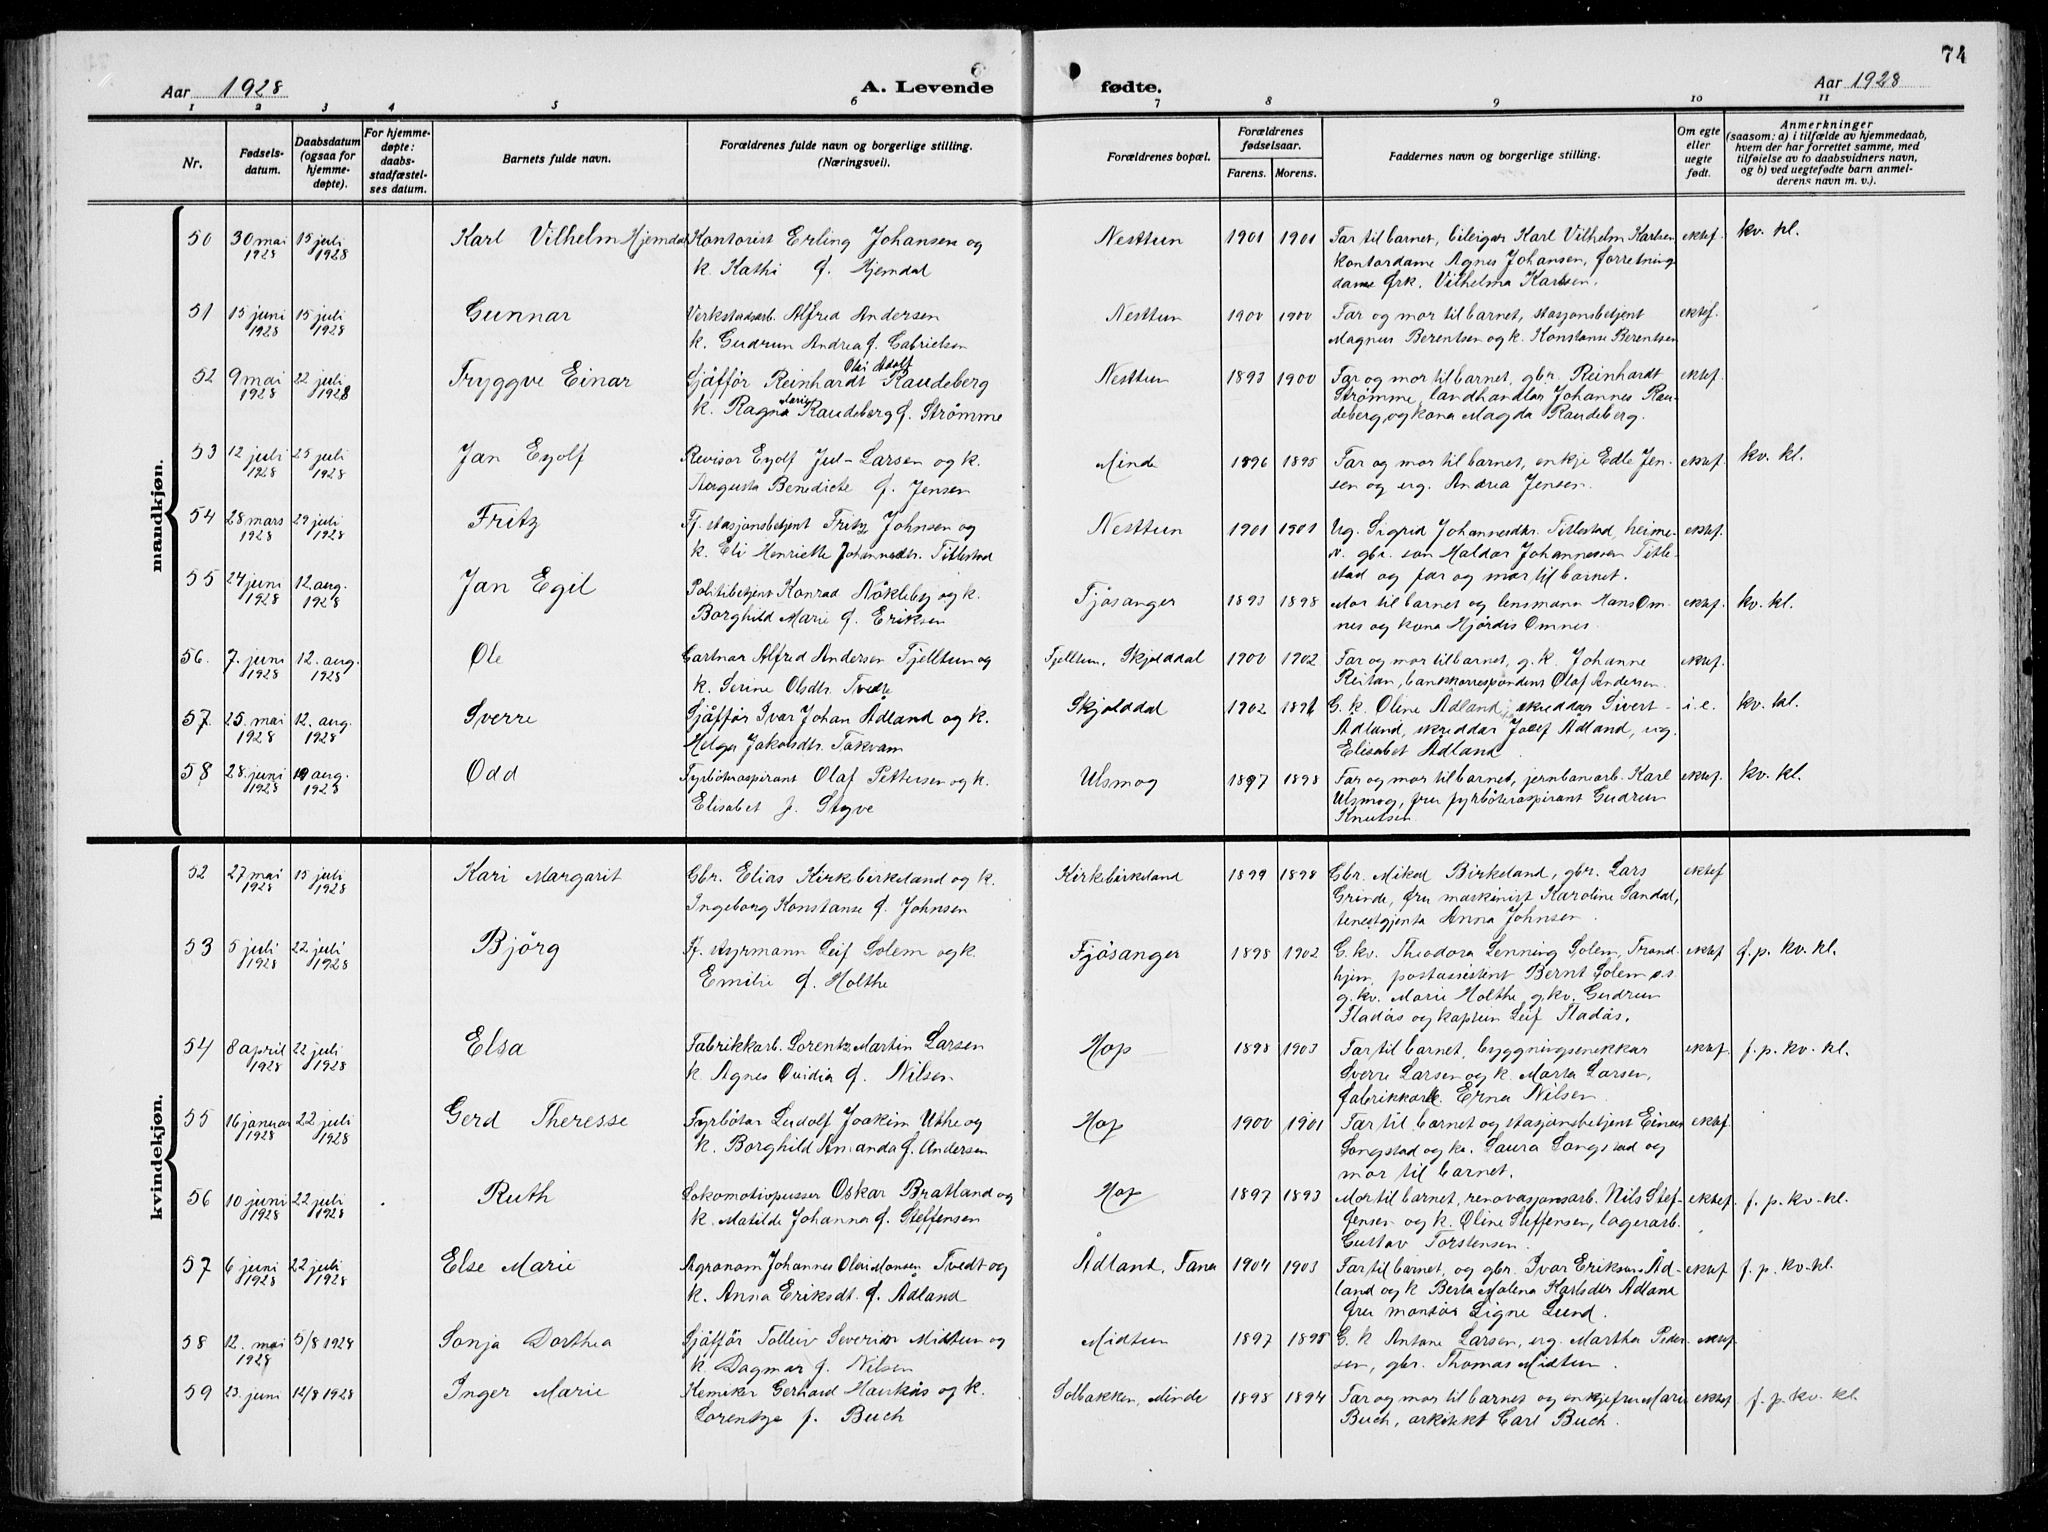 74
Aar 1928 A. Levende fødte. Aar 1928
1 2 3 4 5 6 7 8 9 10 11
Nr.
Fødsels-
datum.
Daabsdatum
(ogsaa for
hjemme-
døpte).
For hjemme-
døpte:
daabs-
stadfæstel-
ses datum.
Barnets fulde navn.
Forældrenes fulde navn og borgerlige stilling.
(Næringsvei.)
Forældrenes bopæl.
Forældrenes
fødselsaar.
Farens. Morens.
Faddernes navn og borgerlige stilling.
Om egte
eller
uegte
født.
Anmerkninger
(saasom: a) i tilfælde av hjemmedaab,
hvem der har forrettet samme, med
tilføielse av to daabsvidners navn,
og b) ved uegtefødte barn anmel-
derens navn m. v.).
mandkjøn.
50 30 mai 1928 15 juli 1928 Karl Vilhelm Hjemdal Kontorist Erling Johansen og
k. Kathi f. Hjemdal
Nesttun 1901 1901 Far til barnet, bileigar Karl Vilhelm Karlsen
kontordame Agnes Johansen, forretning
dame frk. Vilhelma Karlsen.
ektef. kv. kl.
51 15 juni 1928 15 juli 1928 Gunnar Verkstadsarb. Alfred Andersen
k. Gudrun Andrea f. Gabrielsen
Nesttun 1900 1900 Far og mor til barnet, stasjonsbetjent
Magnus Berentsen og k. Konstanse Berentsen
ektef.
52 9 mai 1928 22 juli 1928 Tryggve Einar Sjåfför Reinhardt Olai Adolf Raudeberg
k. Ragna Marie Raudeberg f. Strømme
Nesttun 1893 1900 Far og mor til barnet, gbr. Reinhardt
Strømme, landhandlar Johannes Rau-
deberg, og kona Magda Raudeberg.
ektef.
53 12 juli 1928 25 juli 1928 Jan Eyolf Revisor Eyolf Jul-Larsen og k.
Augusta Benedicte f. Jensen
Minde 1896 1895 Far og mor til barnet, enkje Edle Jen-
sen og ug. Andrea Jensen.
ektef. kv. kl.
54 28 mars 1928 29 juli 1928 Fritz Fj. stasjonsbetjent Fritz Johnsen og
k. Eli Henriette Johannesdtr. Titlestad
Nesttun 1901 1901 Ug. Sigrid Johannesdtr. Titlestad, heime-
v. gbr. son Haldor Johannessen Title-
stad og far og mor til barnet.
ektef.
55 24 juni 1928 12. aug. 1928 Jan Egil Politibetjent Konrad Nökleby og k.
Borghild Marie f. Eriksen
Fjösanger 1893 1898 Mor til barnet og lensmann Hans Om-
nes og kona Hjördis Omnes.
ektef. kv. kl.
56. 7. juni 1928 12. aug. 1928 Ole Gartnar Alfred Andersen Fjelltun og
k. Serine Olsdtr. Tvedte
Fjelltun, Skjolddal 1900 1902 Far og mor til barnet, g. k. Johanne
Reitan, bankkorrespondens Olaf Andersen.
ektef.
57. 25. mai 1928 12. aug 1928 Sverre Sjåfför Ivar Johan Ådland og k.
Helga Jakobsdtr. Takvam
Skjolddal 1902 G. k. Oline Ådland, skreddar Sivert
Ådland, skreddar Josef Ådland, ug.
Elisabet Ådland
i. e. kv. kl.
58 28. juni 1928 19 aug. 1928 Odd Fyrböteraspirant Olaf Pettersen og k.
Elisabet f. Styve
Ulsmog 1897 1898 Far og mor til barnet, jernbanearb. Karl
Ulsmog, fru fyrböteraspirant Gudrun
Knutsen.
ektef. kv. kl.
kvindekjøn.
52 27 mai 1928 15 juli 1928 Kari Margarit Gbr. Elias Kirkebirkeland og k.
Ingeborg Konstanse f. Johnsen
Kirkebirkeland 1899 1898 Gbr. Mikal Birkeland, gbr. Lars
Grinde, fru maskinist Karoline Sandal,
tenestgjenta Anna Johnsen.
ektef
53 5 juli 1928 22 juli 1928 Björg Fj. styrmann Leif Solem og k.
Emilie f. Holthe
Fjösanger 1898 1902 G. kv. Theodora Lenning Solem, Trond
hjem, postassistent Bernt Solem s.s.
g. kv. Marie Holthe, g. kv. Gudrun
Fladås og kaptein Leif Fladås.
ektef f. p. kv. kl.
54 8 april 1928 22 juli 1928 Elsa Fabrikkarb. Lorentz Martin Larsen
k. Agnes Ovidia f. Nilsen
Hop 1898 1903 Far til barnet, byggningssnekkar
Sverre Larsen og k. Marta Larsen,
fabrikkarb. Erna Nilsen
ektef. f. p. kv. kl.
55 16 januar 1928 22 juli 1928 Gerd Theresse Fyrbötar Ludolf Joakim Uthe og
k. Borghild Amanda f. Andersen
Hop 1900 1901 Far til barnet og stasjonsbetjent Einar
Songstad og k. Laura Songstad og
mor til barnet.
ektef.
56 10 juni 1928 22 juli 1928 Ruth Lokomotivpusser Oskar Bratland og
k. Matilde Johanna f. Steffensen
Hop 1897 1893 Mor til barnet, renovasjonsarb. Nils Stef-
fensen og k. Oline Steffensen, lagerarb.
Gustav Torstensen.
ektef. f. p. kv. kl.
57 6 juni 1928 22 juli 1928 Else Marie Agronom Johannes Olai Monsen Tvedt og
k. Anna Eriksdt. f. Ådland
Ådland, Fana 1904 1903 Far til barnet, og gbr. Ivar Eriksen Åd-
land og k Berta Malena Karlsdtr Ådland
fru montör Signe Lund.
ektef f. p. kv. kl.
58 12. mai 1928 5/8 1928 Sonja Dorthea Sjåfför Tolleiv Severin Midtun og
k. Dagmar f. Nilsen
Midtun 1897 1898 G. k Antone Larsen, ug. Martha Peder-
sen, gbr. Thomas Midtun.
ektef.
59 23. juni 12/8 1928 Inger Marie Kemiker Gerhard Haukås og k.
Lorentze f. Buch
Solbakken, Minde 1898 1894 Far og mor til barnet og enkjefru Marie
Buch, arkitekt Carl Buch.
ektef. f. p. kv. kl